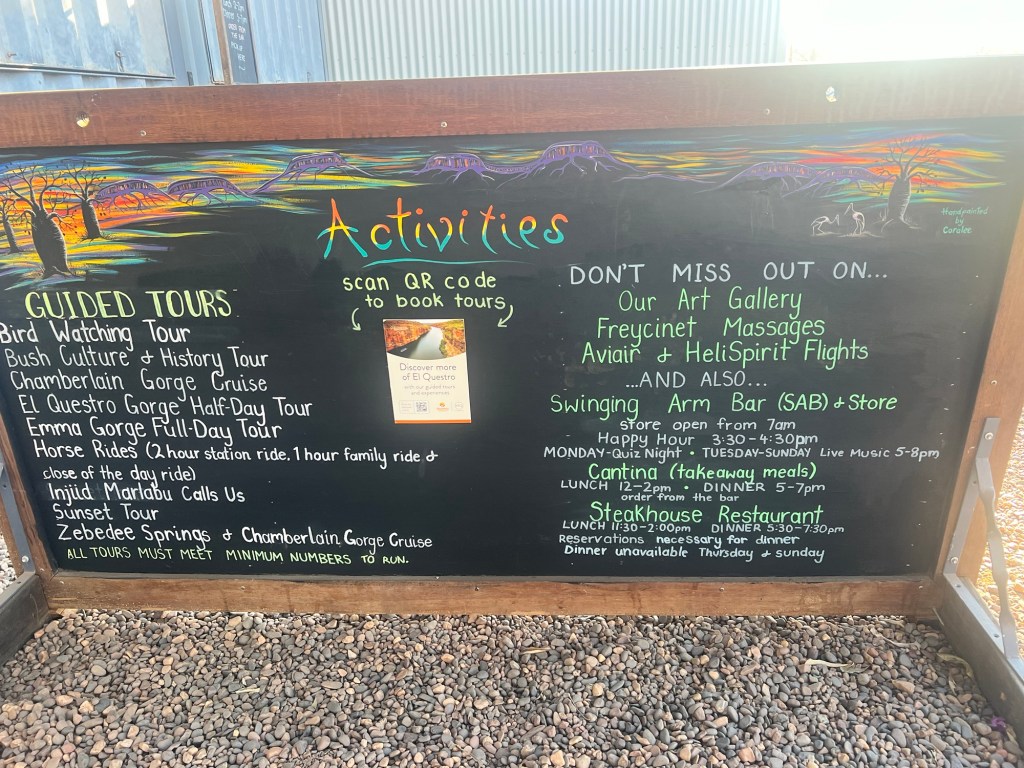 Activities
Handpainted
by
Coralee
scan QR code
to book tours
Discover more
of El Questro
with our guided tours
and experiences
GUIDED TOURS
Bird Watching Tour
Bush Culture & History Tour
Chamberlain Gorge Cruise
El Questro Gorge Half-Day Tour
Emma Gorge Full-Day Tour
Horse Rides (2 hour station ride, 1 hour family ride &
close of the day ride)
Injiid Marlabu Calls Us
Sunset Tour
Zebedee Springs & Chamberlain Gorge Cruise
ALL TOURS MUST MEET MINIMUM NUMBERS TO RUN.
DON'T MISS OUT ON...
Our Art Gallery
Freycinet Massages
Aviair & HeliSpirit Flights
...AND ALSO...
Swinging Arm Bar (SAB) & Store
store open from 7am
Happy Hour 3:30-4:30pm
MONDAY-Quiz Night • TUESDAY-SUNDAY Live Music 5-8pm
Cantina (takeaway meals)
LUNCH 12-2pm • DINNER 5-7pm
order from the bar
Steakhouse Restaurant
LUNCH 11:30-2:00pm DINNER 5:30-7:30pm
Reservations necessary for dinner
Dinner unavailable Thursday & Sunday